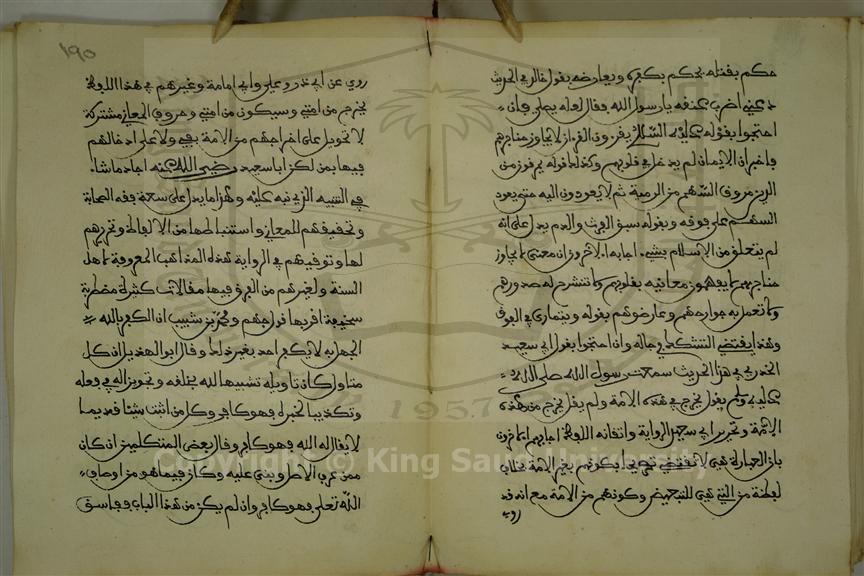 حكم بقتله يحكم بكفره ويعارضه بقول خالد في الحديث
دعني اضرب عنقه يارسول الله فقال لعله يصلي فان
احتجوا بقوله عليه السلام يقرءون القرءان لا يجاوز حناجرهم
فاخبر ان الايمان لم يدخل في قلوبهم وكذلك قوله يمرقون من
الدين مروق السهم من الرمية ثم لا يعودون اليه حتى يعود
السهم على فوقه وبقوله سبق الفرث والدم يدل على انه
لم يتعلق من الاسلام بشيء اجابه الاخرون ان معنى لا يجاوز
حناجرهم لا يفهمون معانيه بقلوبهم ولا تنشرح له صدورهم
ولا تعمل به جوارحهم وعارضوهم بقوله ويتمارى في الفوق
وهذا يقتضي التشكك في حاله وان احتجوا بقول ابي سعيد
الخدري في هذا الحديث سمعت رسول الله صلى الله
عليه وسلم يقول يخرج في هذه الامة ولم يقل يخرج من هذه
الامة وتحرير ابي سعيد الرواية واتقانه اللفظ اجابهم الاخرون
بان العبارة بفي لا تقتضي تصريحا بكونهم بغير الامة بخلاف
لفظة من التي هي للتبعيض وكونهم من الامة مع انه قد
روي
١٩٥
روي عن ابي ذر وعلي وابي امامة وغيرهم في هذا اللفظ
يخرج من امتي وسيكون من امتي وحروف المعاني مشتركة
لا تحويل على اخراجهم من الامة بفي ولا على ادخالهم
فيها بمن لكن ابا سعيد رضي الله عنه اجاد ماشا
في التنبيه الذي نبه عليه وهذا مما يدل على سعة فقه الصحابة
وتحقيقهم للمعاني واستنباطها من الالفاظ وتحريرهم
لها وتوقيهم في الرواية هذه المذاهب المعروفة لاهل
السنة ولغيرهم من الفرق فيها مقالات كثيرة مضطربة
سخيفة اقربها قول جهم ومحمد بن شبيب ان الكفر بالله
الجهل به لا يكفر احد بغير ذلك وقال ابو الهذيل ان كل
متاول كان تاويله تشبيها لله بخلقه وتجويرا له في فعله
وتكذيبا لخبره فهو كافر وكل من اثبت شيئا قديما
لا يقال له الله فهو كافر وقال بعض المتكلمين ان كان
ممن عرف الاصل وبنى عليه وكان فيما هو من اوصاف
الله تعلى فهو كافر وان لم يكن من هذا الباب ففاسق
Copyright © King Saud University
1957